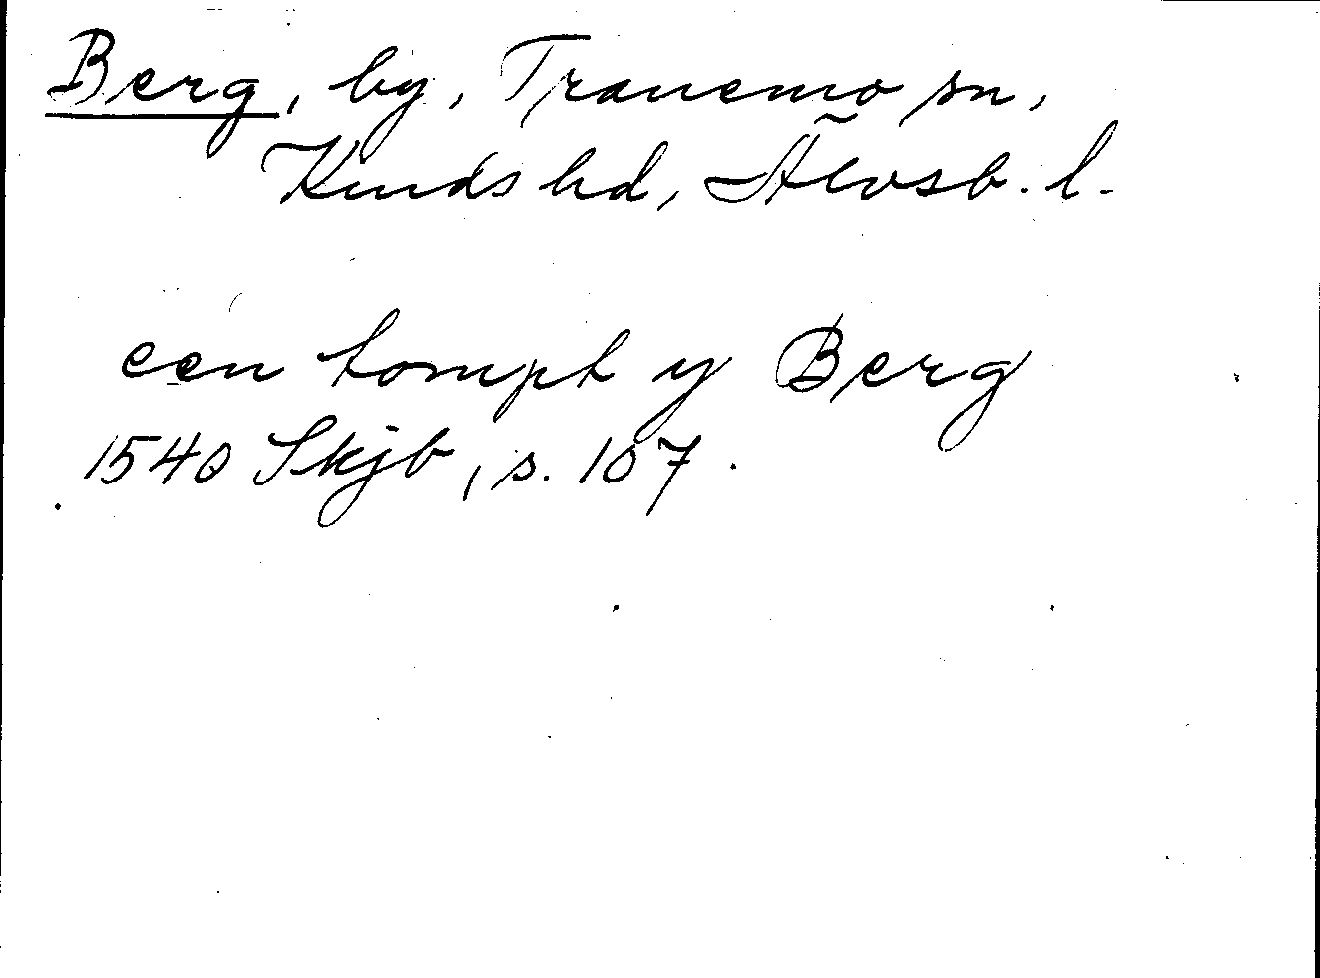 Berg, by, Tranemo sn,
Kinds hd, Älvsb. l.
een tompt y Berg
1540 Skjb, s. 107.